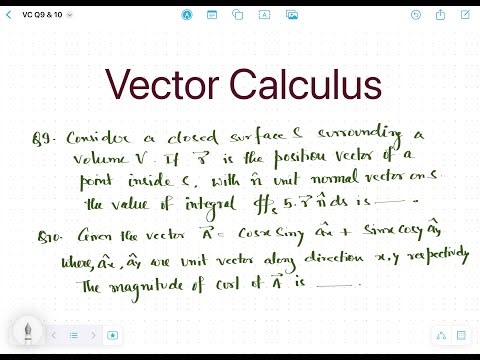 VC Q9 & 10
Vector Calculus
Q9. Consider a closed surface S surrounding a
volume V. If r⃗ is the position vector of a
point inside S, with n̂ unit normal vector on S.
the value of integral ∯s 5. r⃗ n̂ ds is ___.
Q10. Given the vector A⃗ = cosx siny âx + sinx cosy ây
where, âx, ây are unit vector along direction x,y respectively
The magnitude of curl of A⃗ is ___.